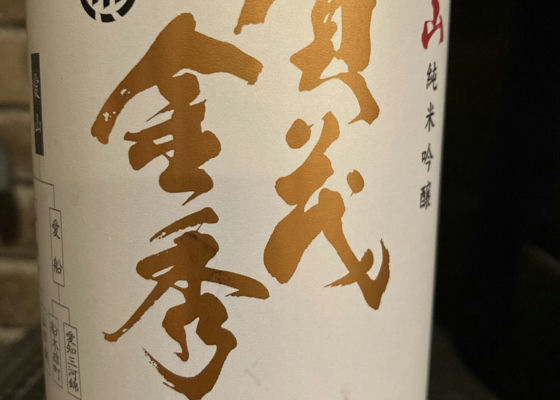 山 純米吟醸
賀茂
金秀
愛船
愛知三河錦
船木雄町